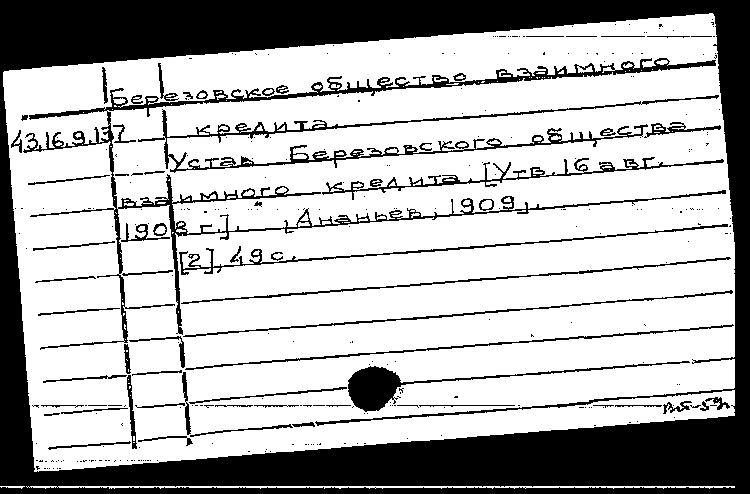 Березовское общество взаимного
43.16.9.137 кредита.
Устав Березовского общества
взаимного кредита. [Утв. 16 авг.
1908 г.]. [Ананьев, 1909].
[2], 49 с.